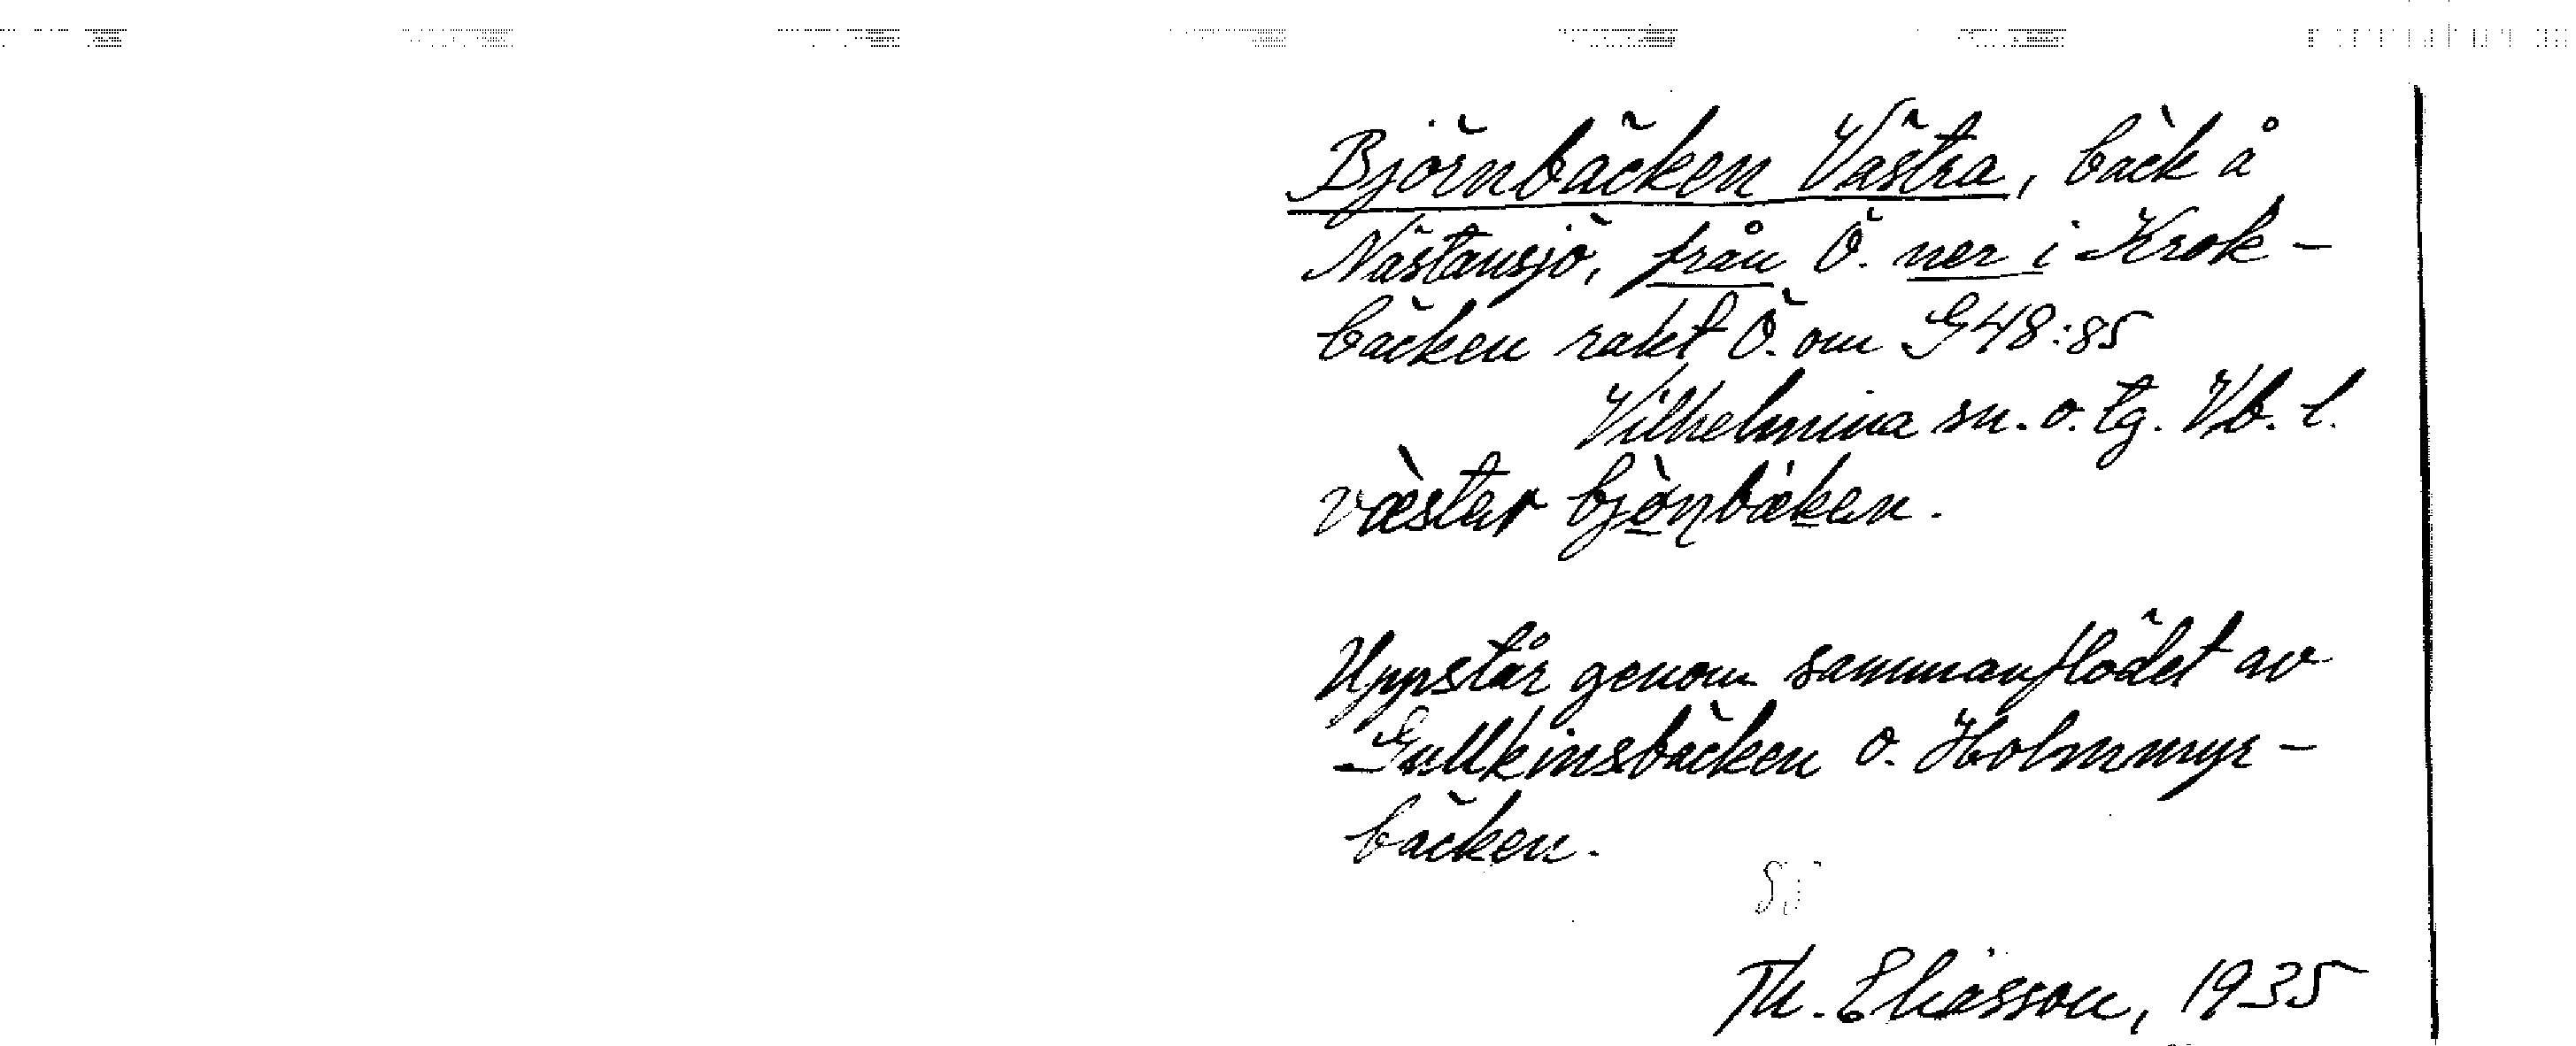 Björnbäcken Västra, bäck å
Nästansjö, från Ö. ner i Krok-
bäcken rakt Ö. om G48:85
Vilhelmina sn. o. tg. Vb. l.
væ̀star bjö̀ṇbækan.
Uppstår genom sammanflödet av
Gullkinsbäcken o. Holmmyr-
bäcken.
Th. Eliasson, 1935